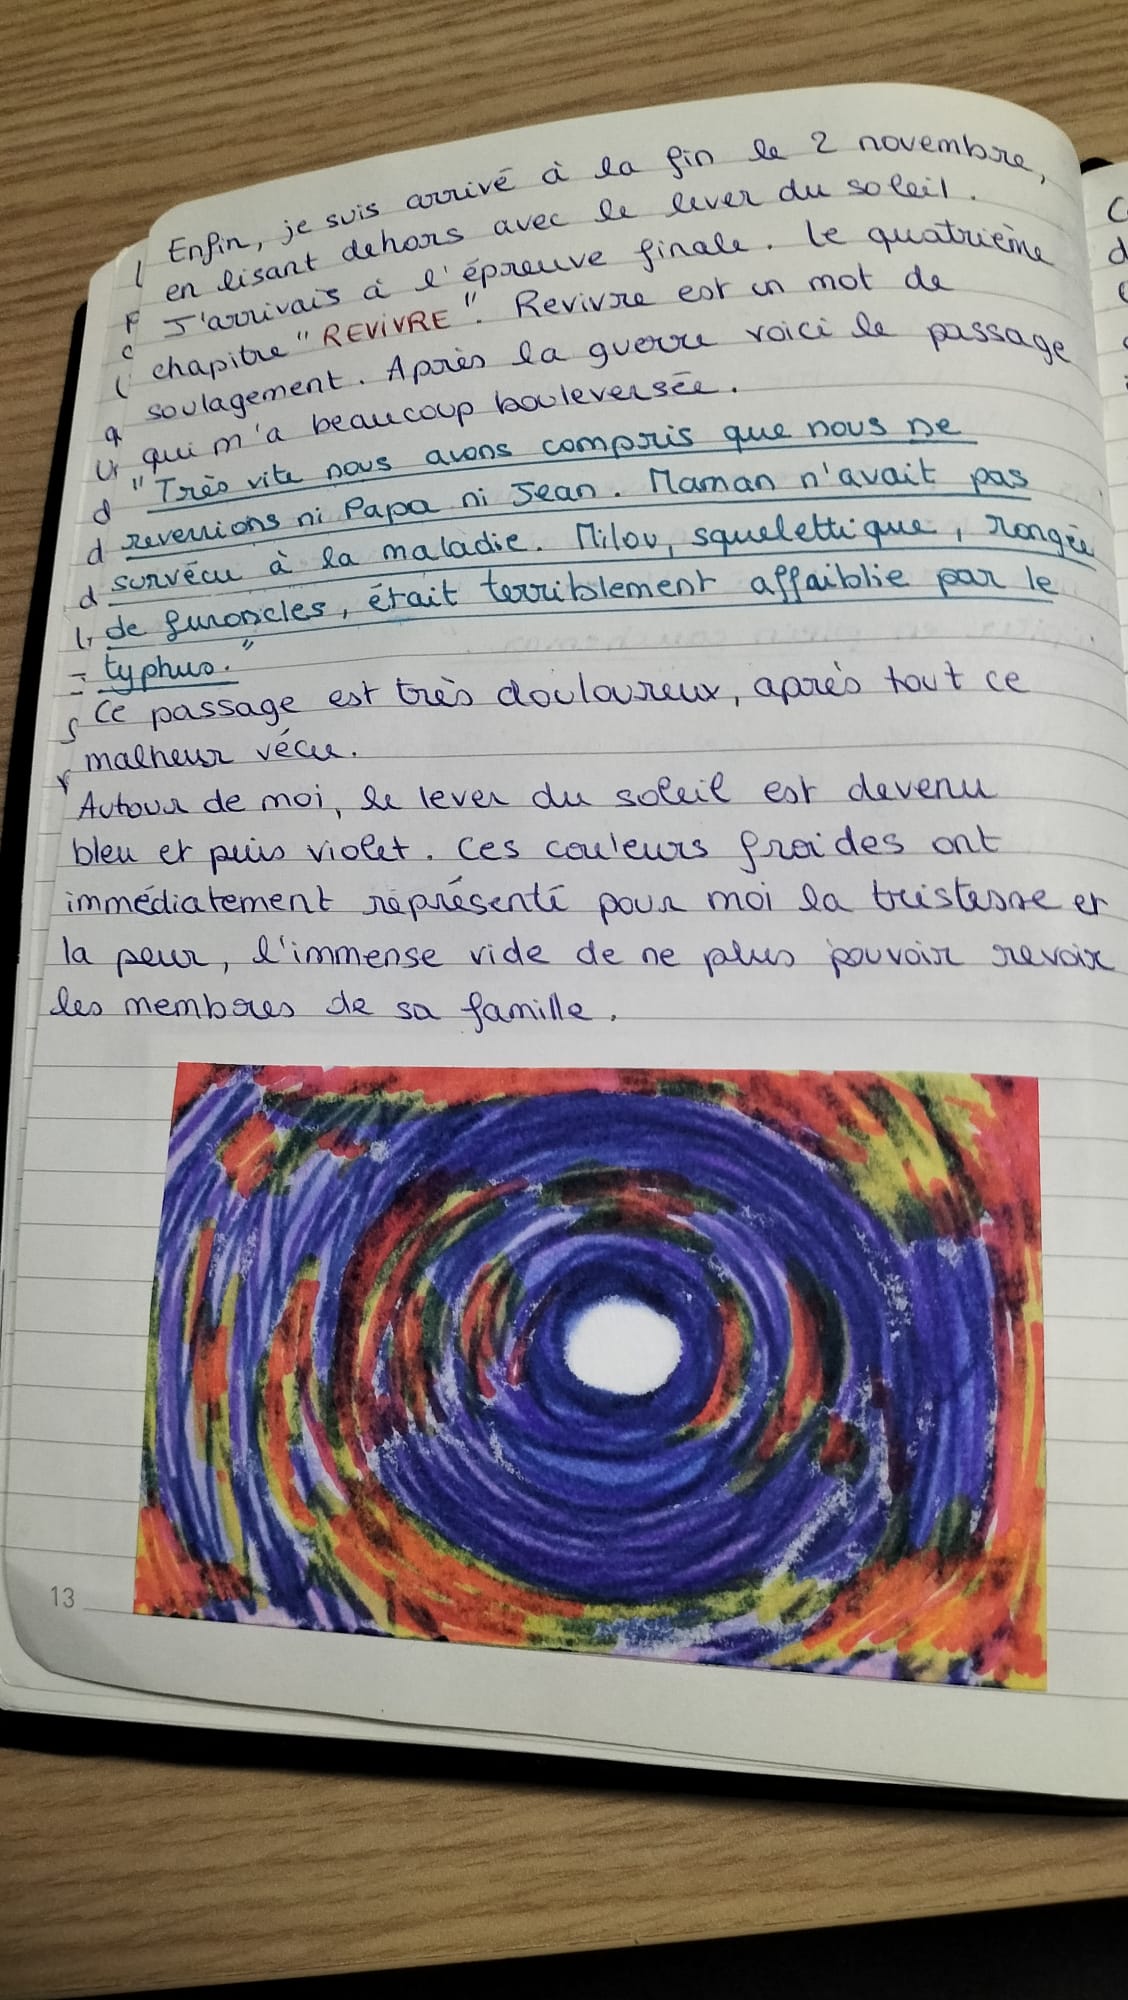 Enfin, je suis arrivé à la fin le 2 novembre,
en lisant dehors avec le lever du soleil.
J'arrivais à l'épreuve finale. Le quatrième
chapitre "REVIVRE". Revivre est un mot de
soulagement. Après la guerre voici le passage
qui m'a beaucoup bouleversée.
"Très vite nous avons compris que nous ne
reverrions ni Papa ni Jean. Maman n'avait pas
survécu à la maladie. Milou, squelettique, rongée
de furoncles, était terriblement affaiblie par le
typhus."
Ce passage est très douloureux, après tout ce
malheur vécu.
Autour de moi, le lever du soleil est devenu
bleu et puis violet. Ces couleurs froides ont
immédiatement représenté pour moi la tristesse et
la peur, l'immense vide de ne plus pouvoir revoir
les membres de sa famille.
13